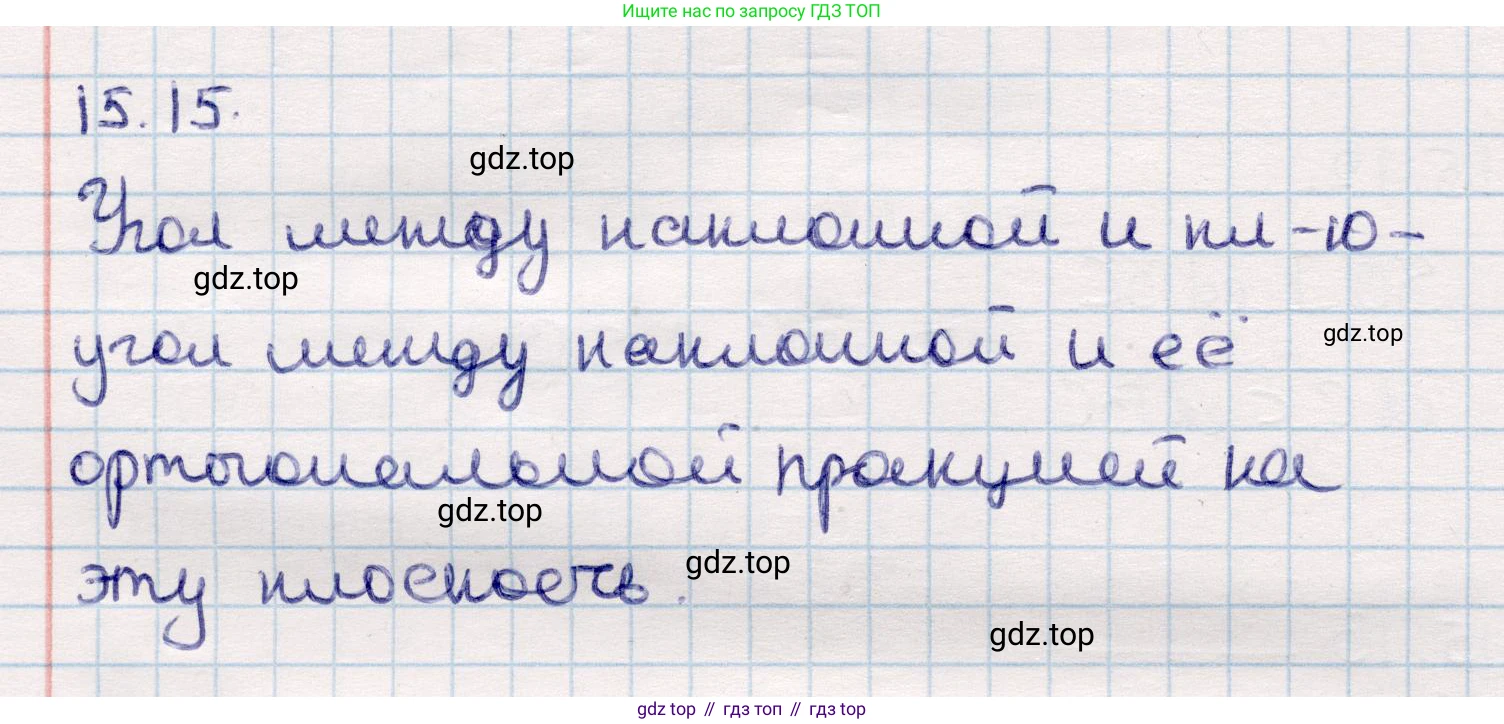 Ищите нас по запросу ГДЗ ТОП
15.15.
gdz.top
Угол между наклонной и пл-ю-
gdz.top
угол между наклонной и её
gdz.top
ортогональной проекцией на
gdz.top
эту плоскость.
gdz.top
gdz.top
gdz top // гдз топ // гдз top